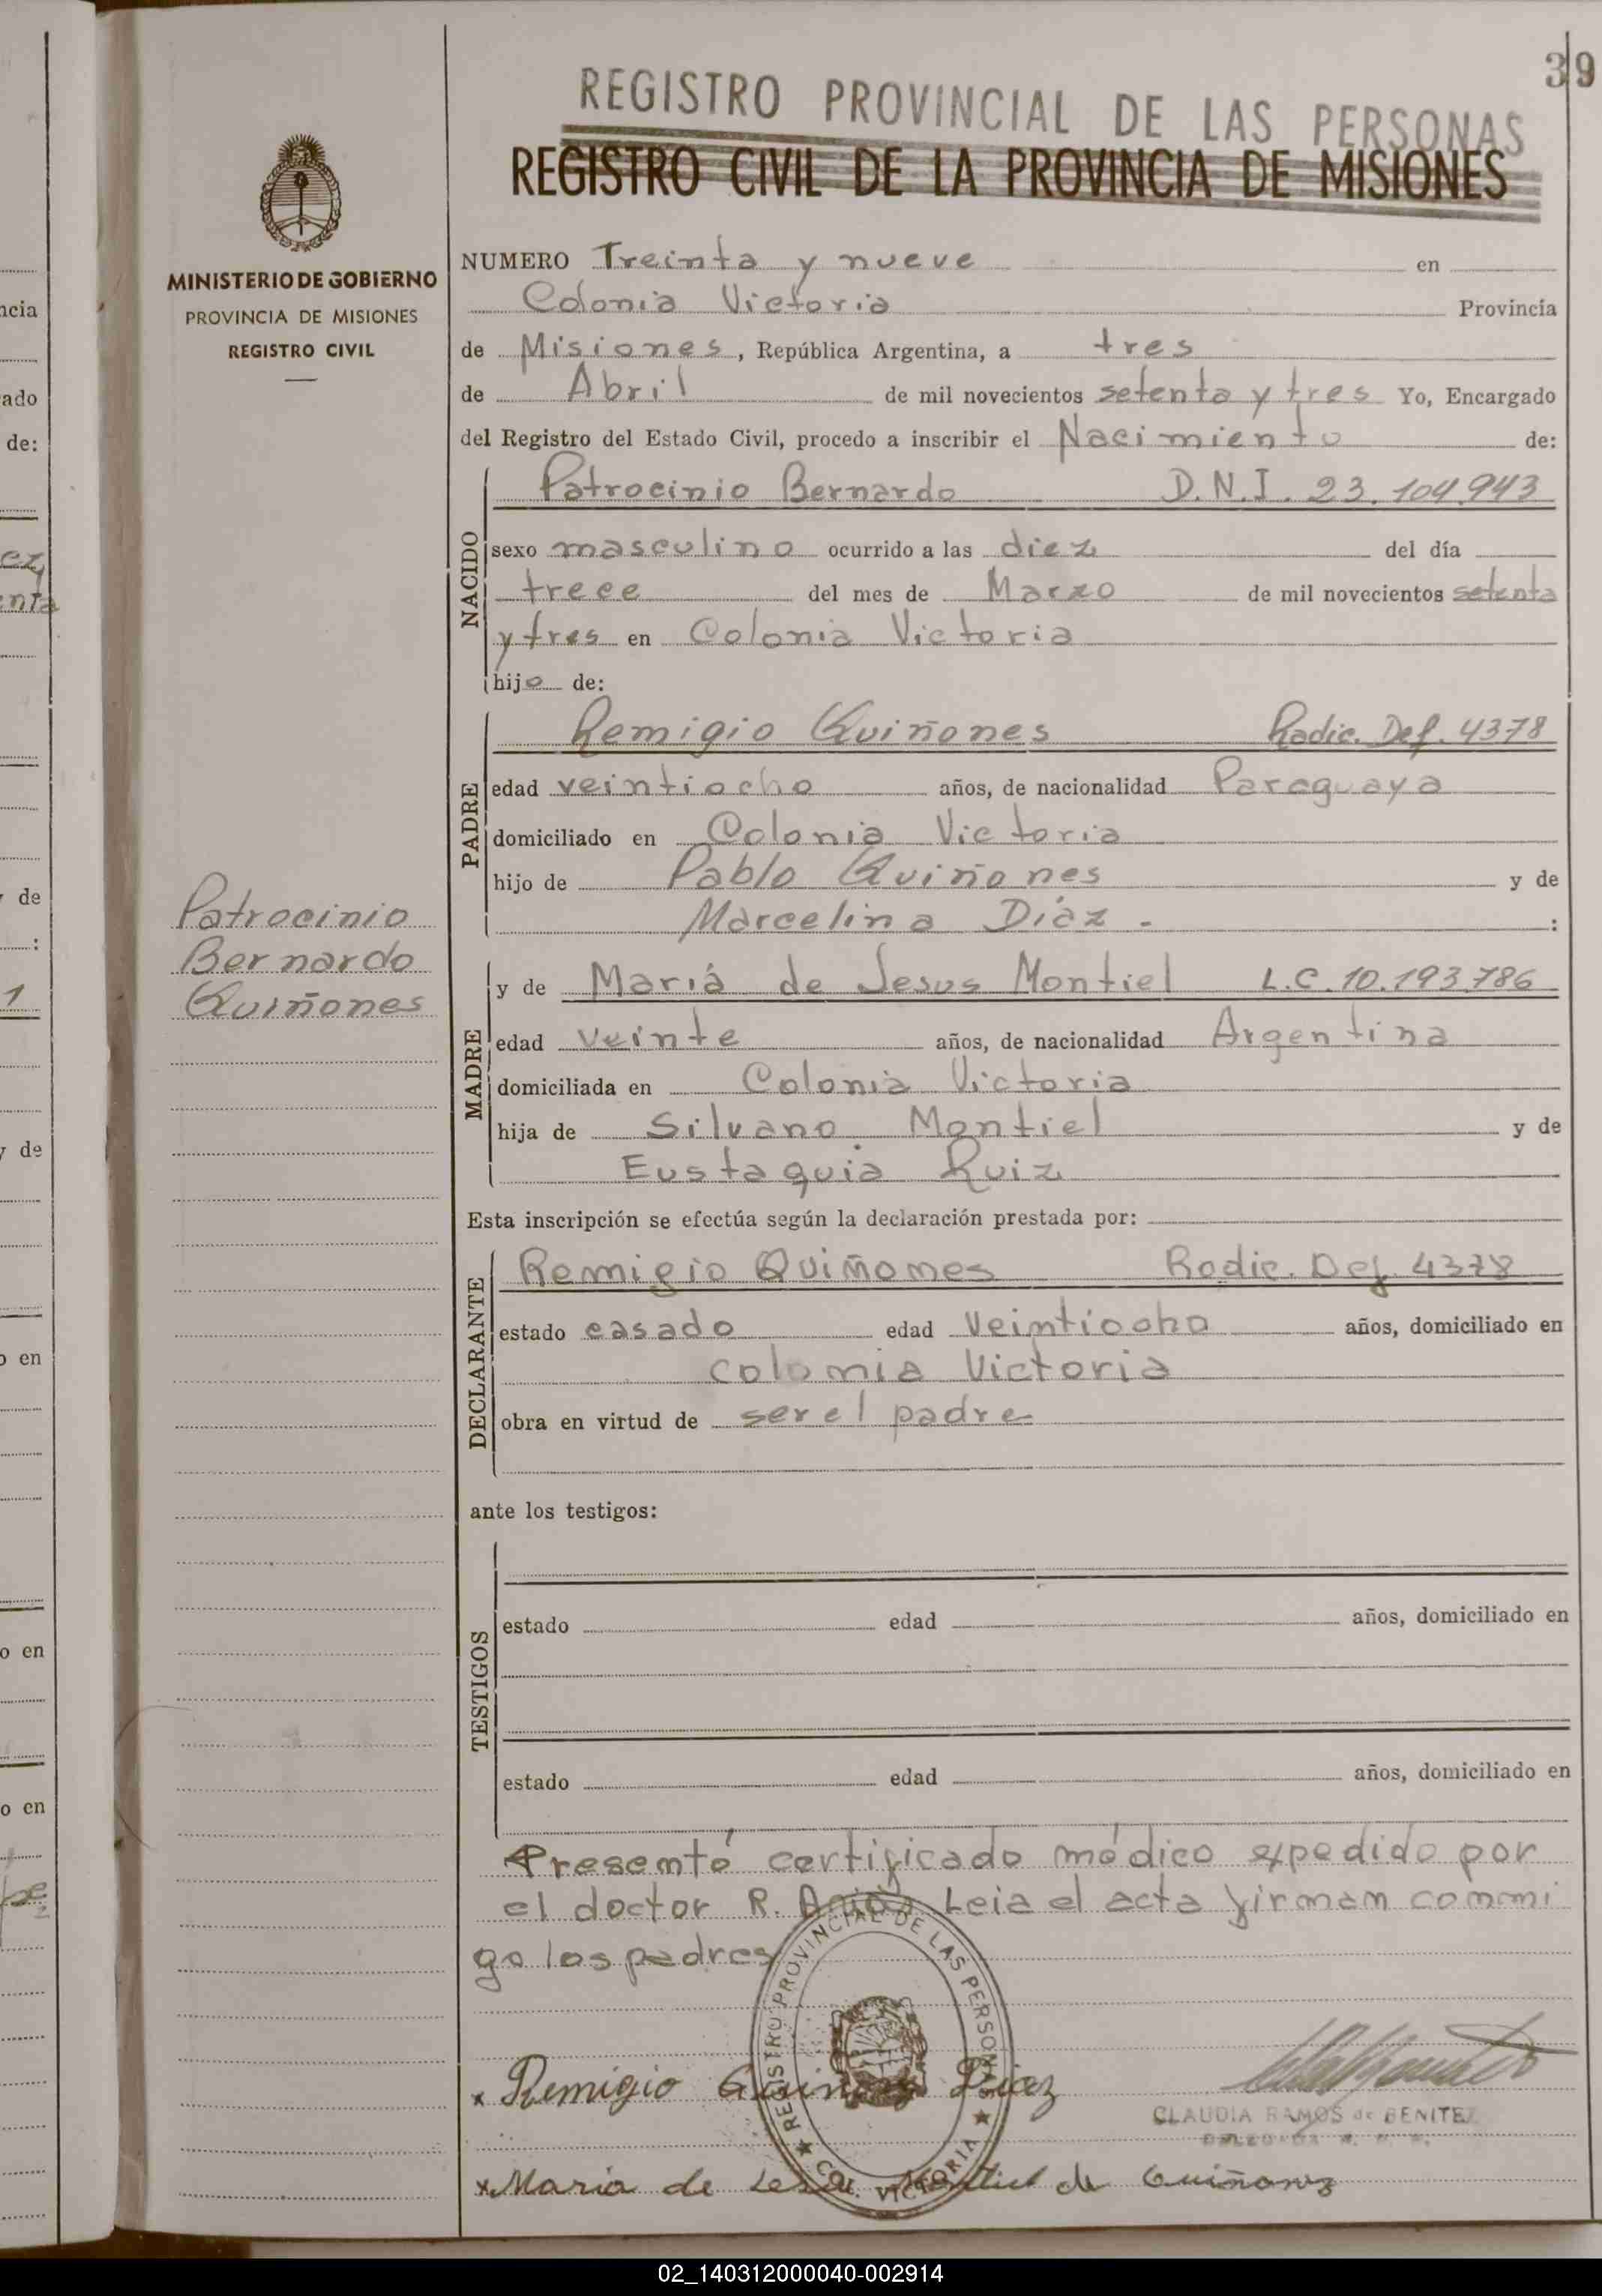 39
REGISTRO PROVINCIAL DE LAS PERSONAS
REGISTRO CIVIL DE LA PROVINCIA DE MISIONES
MINISTERIO DE GOBIERNO
PROVINCIA DE MISIONES
REGISTRO CIVIL
NUMERO Treinta y nueve en
Colonia Victoria Provincia
de Misiones, República Argentina, a tres
de Abril de mil novecientos setenta y tres Yo, Encargado
del Registro del Estado Civil, procedo a inscribir el Nacimiento de:
NACIDO
Patrocinio Bernardo D.N.I. 23.104.943
sexo masculino ocurrido a las diez del día
trece del mes de Marzo de mil novecientos setenta
y tres en Colonia Victoria
hijo de:
PADRE
Remigio Quiñones Radic. Def. 4378
edad veintiocho años, de nacionalidad Paraguaya
domiciliado en Colonia Victoria
hijo de Pablo Quiñones y de
Marcelina Díaz - :
Patrocinio
Bernardo
Quiñones
MADRE
y de María de Jesus Montiel L.C. 10.193.786
edad veinte años, de nacionalidad Argentina
domiciliada en Colonia Victoria
hija de Silvano Montiel y de
Eustaquia Ruiz
Esta inscripción se efectúa según la declaración prestada por:
DECLARANTE
Remigio Quiñones Radic. Def. 4378
estado casado edad veintiocho años, domiciliado en
colonia Victoria
obra en virtud de ser el padre
ante los testigos:
TESTIGOS
estado edad años, domiciliado en
estado edad años, domiciliado en
Presentó certificado médico expedido por
el doctor R. Leia el acta firman conmi
go los padres
REGISTRO PROVINCIAL DE LAS PERSONAS
COL. VICTORIA
x Remigio Quiñonez Diaz
CLAUDIA RAMOS de BENITEZ
x Maria de Jesus Montiel de Quiñonez
ncia
ado
de:
ez
enta
y de
:
1
y de
o en
o en
o en
02_140312000040-002914